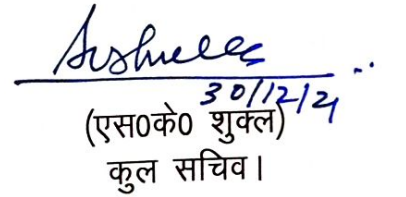 30/12/21
(एस0के0 शुक्ल)
कुल सचिव।